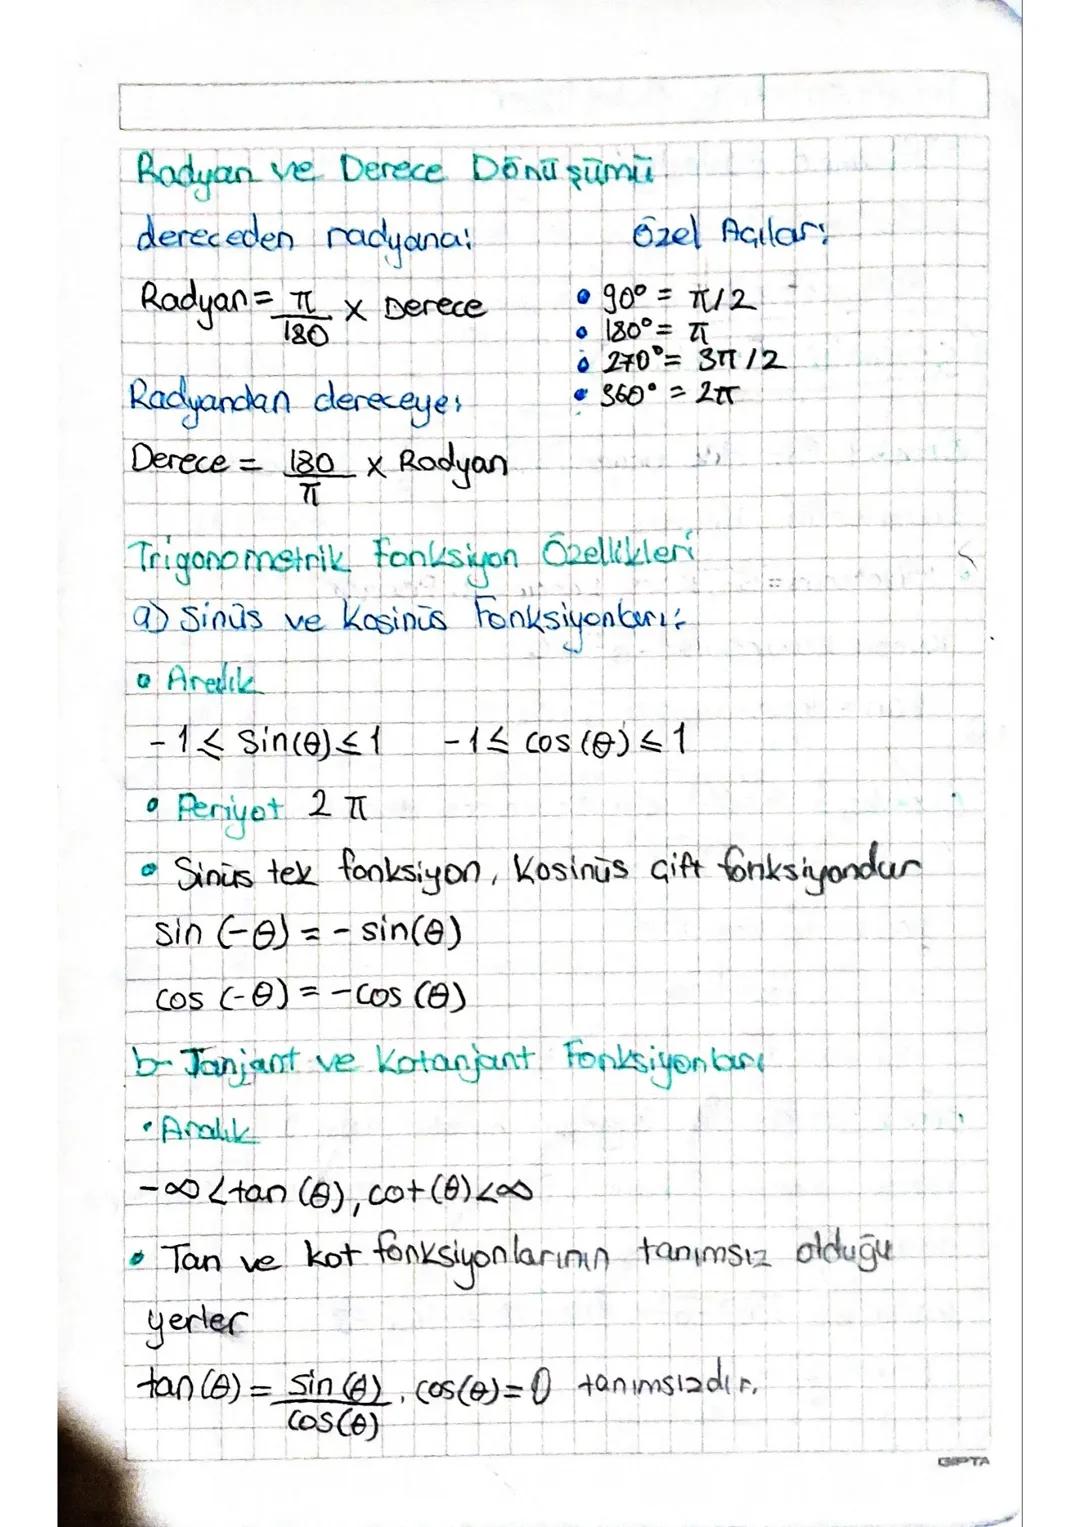 Radyan ve Derece Dönüşümü
dereceden radyana:
Özel Açılar:
Radyan = π/180 x Derece
• 90° = π/2
• 180° = π
• 270° = 3π/2
• 360° = 2π
Radyandan dereceye:
Derece = 180/π x Radyan
Trigonometrik Fonksiyon Özellikleri
a) Sinüs ve Kosinüs Fonksiyonları:
• Aralık
-1 ≤ Sin(θ) ≤ 1 -1 ≤ cos(θ) ≤ 1
• Periyot 2π
• Sinüs tek fonksiyon, Kosinüs çift fonksiyondur
sin (-θ) = - sin(θ)
cos (-θ) = -cos (θ)
b- Tanjant ve Kotanjant Fonksiyonları
• Aralık
-∞ < tan (θ), cot (θ) < ∞
• Tan ve kot fonksiyonlarının tanımsız olduğu
yerler
tan (θ) = sin (θ)/cos(θ), cos(θ) = 0 tanımsızdır.
GIPTA